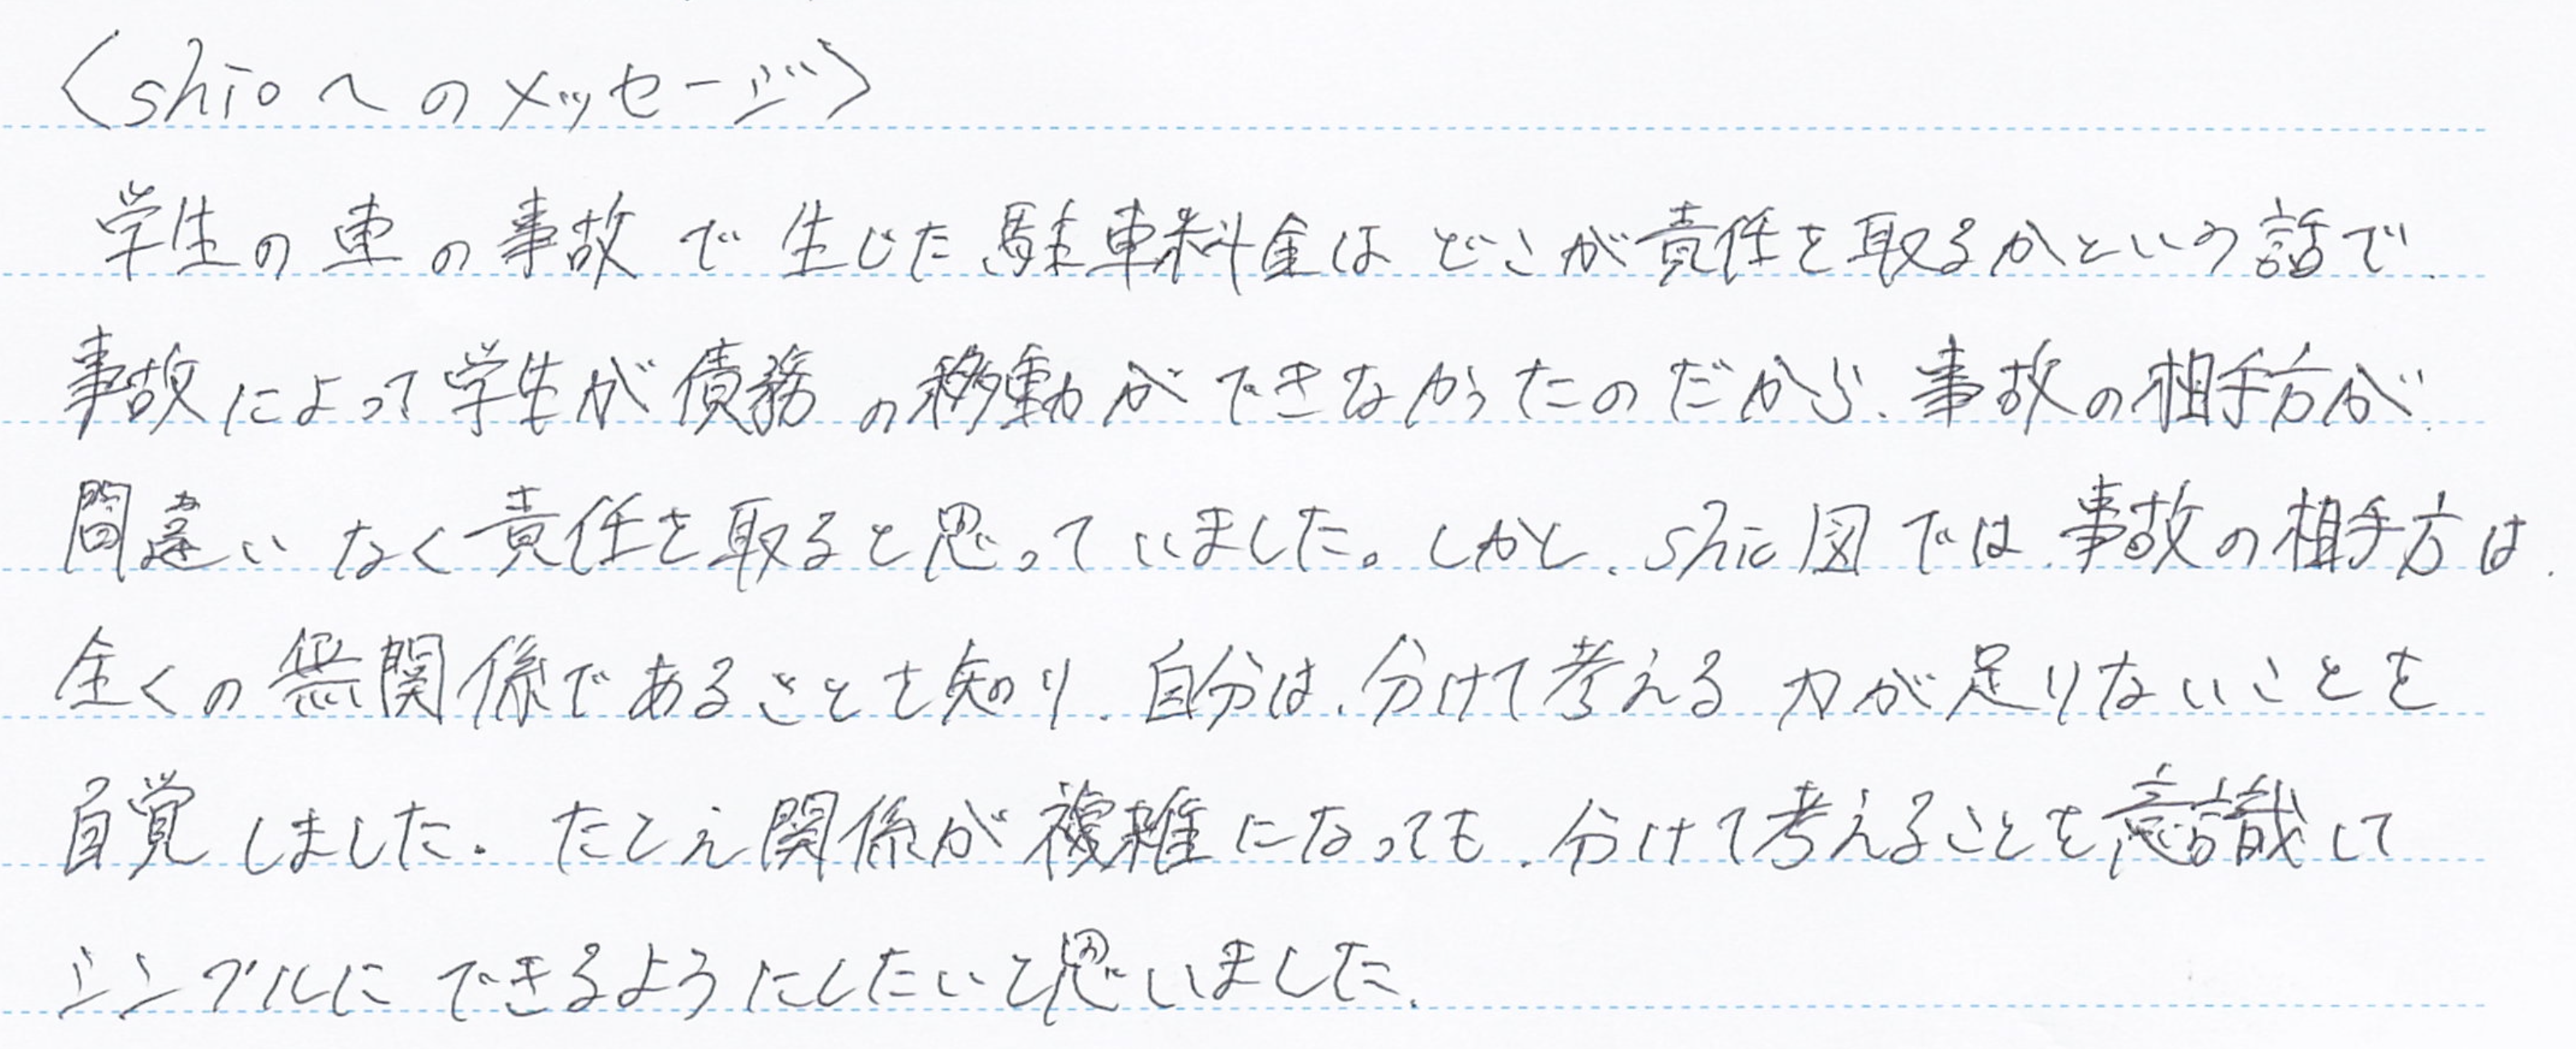 〈shioへのメッセージ〉
学生の車の事故で生じた駐車料金はどこが責任を取るかという話で、
事故によって学生が債務の移動ができなかったのだから、事故の相手方が、
間違いなく責任を取ると思っていました。しかし、shio図では、事故の相手方は、
全くの無関係であることを知り、自分は、分けて考える力が足りないことを
自覚しました。たとえ関係が複雑になっても、分けて考えることを意識して
シンプルにできるようにしたいと思いました。